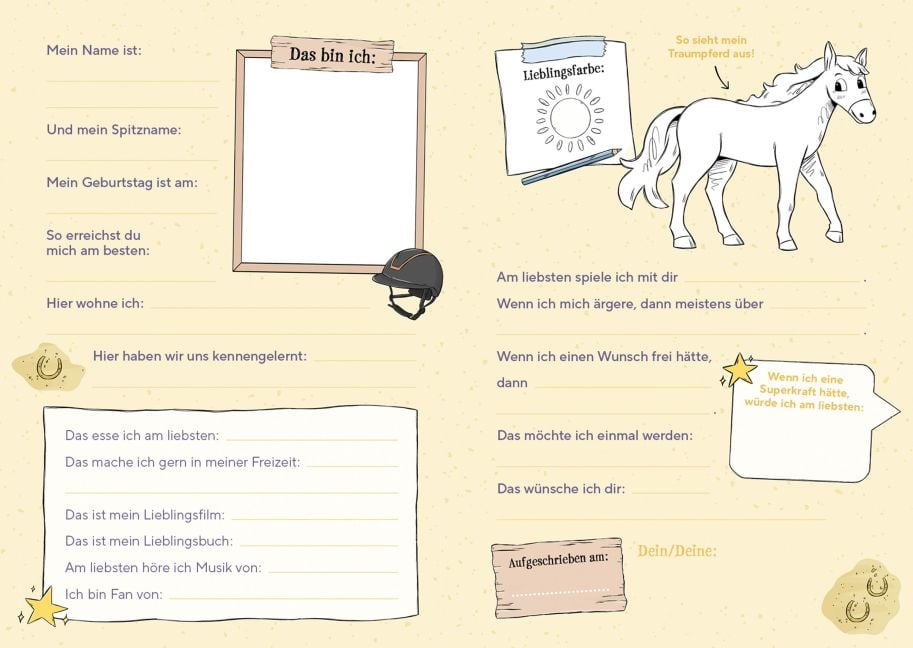 Mein Name ist:
Und mein Spitzname:
Mein Geburtstag ist am:
So erreichst du
mich am besten:
Hier wohne ich:
Das bin ich:
Hier haben wir uns kennengelernt:
Das esse ich am liebsten:
Das mache ich gern in meiner Freizeit:
Das ist mein Lieblingsfilm:
Das ist mein Lieblingsbuch:
Am liebsten höre ich Musik von:
Ich bin Fan von:
Lieblingsfarbe:
So sieht mein
Traumpferd aus!
Am liebsten spiele ich mit dir .
Wenn ich mich ärgere, dann meistens über
.
Wenn ich einen Wunsch frei hätte,
dann
.
Wenn ich eine
Superkraft hätte,
würde ich am liebsten:
Das möchte ich einmal werden:
Das wünsche ich dir:
Aufgeschrieben am:
Dein/Deine: